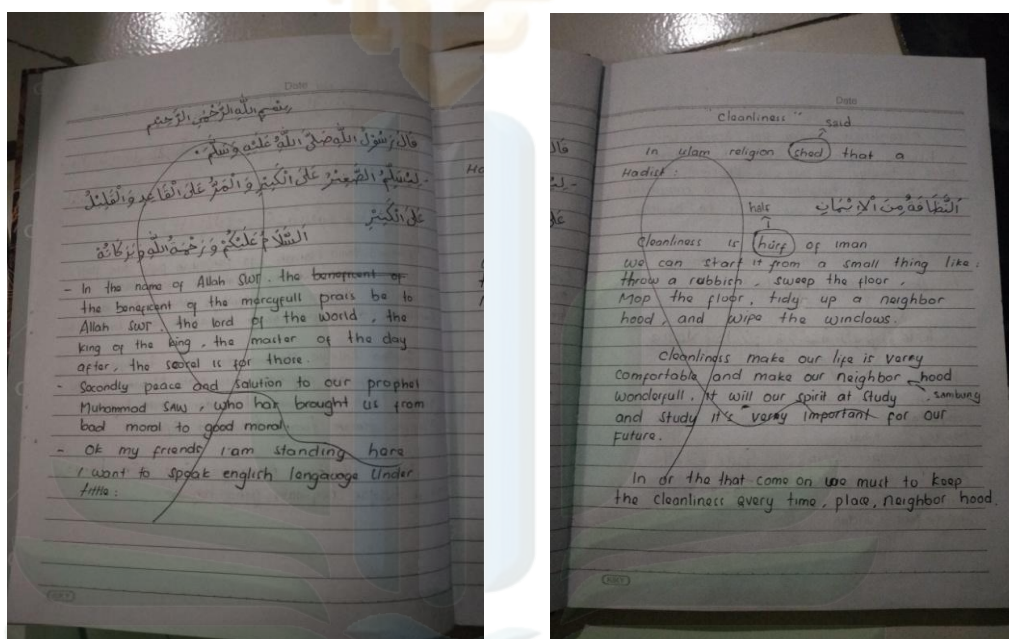 Date
بِسْمِ اللهِ الرَّحْمٰنِ الرَّحِيْمِ
قَالَ رَسُوْلُ اللهِ صَلَّى اللهُ عَلَيْهِ وَسَلَّمَ.
- لِيُسَلِّمُ الصَّغِيْرُ عَلَى الْكَبِيْرِ وَالْمَرُّ عَلَى الْقَاعِدِ وَالْقَلِيْلُ
عَلَى الْكَبِيْرِ
اَلسَّلَامُ عَلَيْكُمْ وَرَحْمَةُ اللهِ وَبَرَكَاتُهُ
- In the name of Allah SWT. the beneficent of
the beneficent of the mercyfull prais be to
Allah SWT the lord of the world, the
king of the king, the master of the day
after, the is for those.
- Secondly peace and salution to our prophet
Muhammad SAW, who has brought us from
bad moral to good moral.
- Ok my friends i'am standing here
I want to speak english lengauage under
tittle:
Date
Cleanliness "
said
In ulam religion shed that a
Hadist:
اَلنَّظَافَةُ مِنَ الْاِيْمَانِ
half
Cleanliness is hurf of iman
we can start it from a small thing like:
throw a rubbish, sweep the floor,
Mop the floor, tidy up a neighbor
hood, and wipe the winclows.
Cleanliness make our life is verey
comfortable and make our neighbor hood
wonderfull, it will our spirit at study sambung
and study it's verey important for our
Future.
In or the that come on we must to keep
the cleanliness every time, place, neighbor hood.